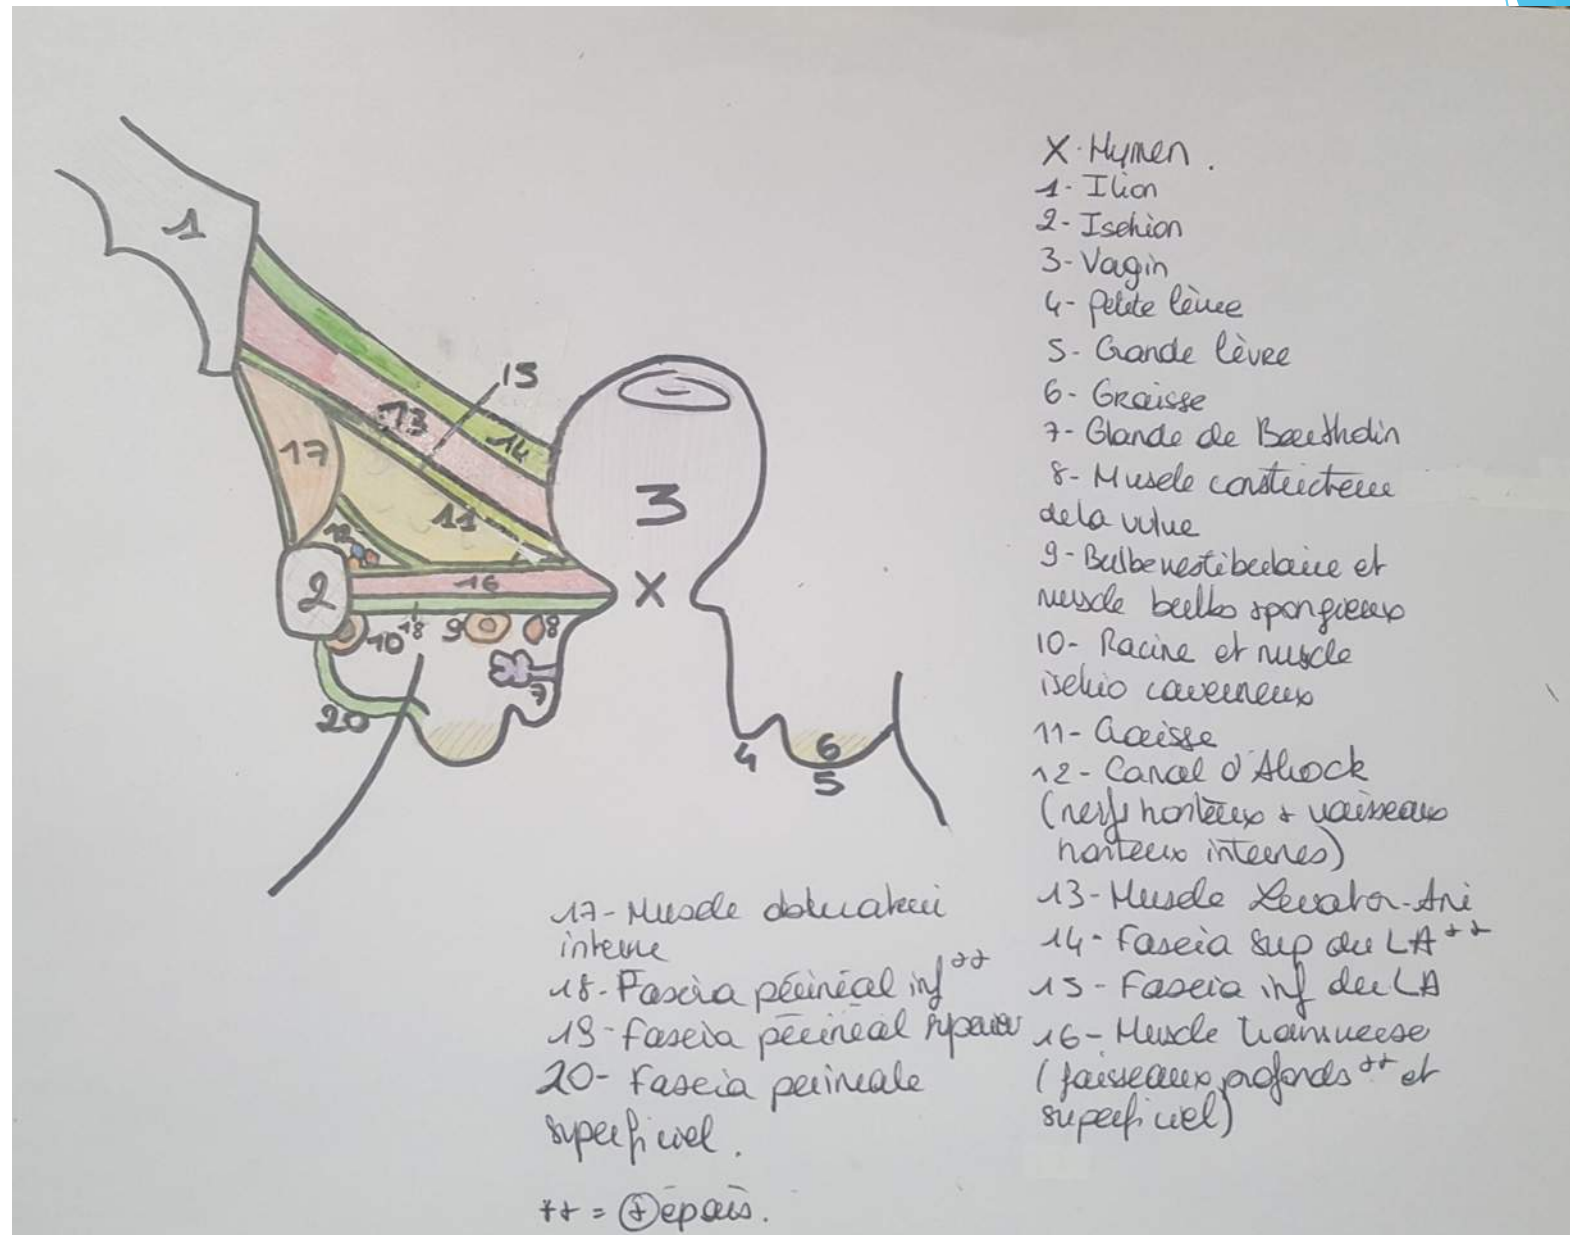 1
15
13
14
17
3
11
12
16
2
X
10
18
9
8
7
20
4
6
5
X- Hymen.
1- Ilion
2- Ischion
3- Vagin
4- petite lèvre
5- Grande lèvre
6- Graisse
7- Glande de Bartholin
8- Muscle constricteur
de la vulve
9- Bulbe vestibulaire et
muscle bulbo spongieux
10- Racine et muscle
ischio caverneux
11- Graisse
12- Canal d'Alcock
(nerfs honteux + vaisseaux
honteux internes)
13- Muscle Levator-Ani
14- Fascia sup du LA++
15- Fascia inf du LA
16- Muscle transverse
(faisseaux profonds++ et
superficiel)
17- Muscle obturateur
interne
18- Fascia périnéal inf++
19- Fascia périnéal
20- Fascia perineale
superficiel.
++ = + épais.